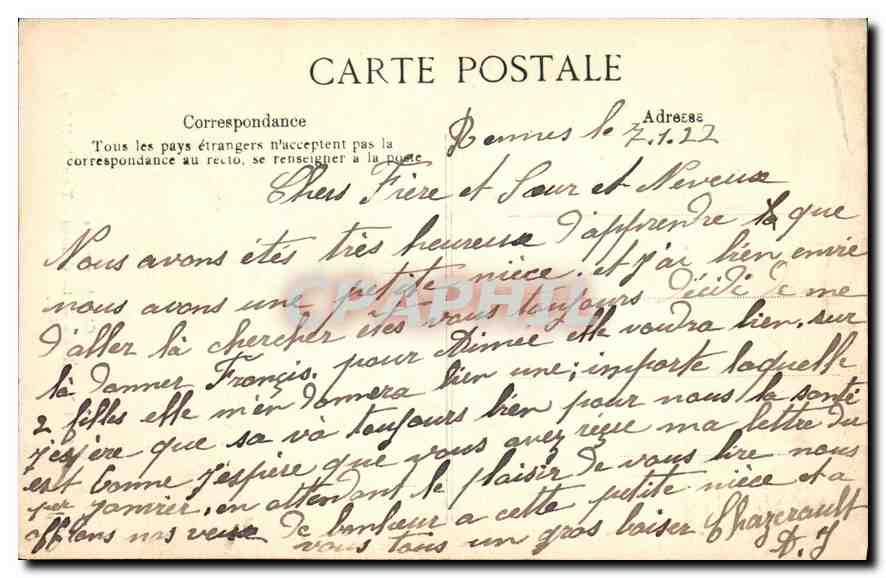 CARTE POSTALE
Correspondance
Adresse
Tous les pays étrangers n'acceptent pas la
correspondance au recto, se renseigner à la poste
Rennes le 7.1.22
Chers Frère et Sœur et Neveux
Nous avons étés très heureux d'apprendre que
nous avons une petite nièce. et j'ai bien envie
d'aller là chercher êtes vous toujours décidé de me
là donner Françis. pour Aimée elle voudra bien. sur
2 filles elle m'en donnera bien une; importe laquelle
j'espère que sa và toujours bien pour nous la santé
est bonne j'espère que vous avez reçue ma lettre du
1er janvier, en attendant le plaisir de vous lire nous
offrons nos veux de bonheur a cette petite nièce et a
vous tous un gros baiser Chazerault
D. J
CPAPHIL